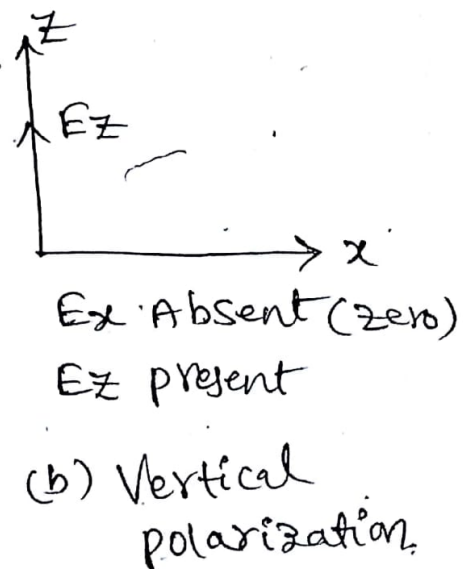 Z
Ez
x
Ex Absent (zero)
Ez present
(b) Vertical
polarization.